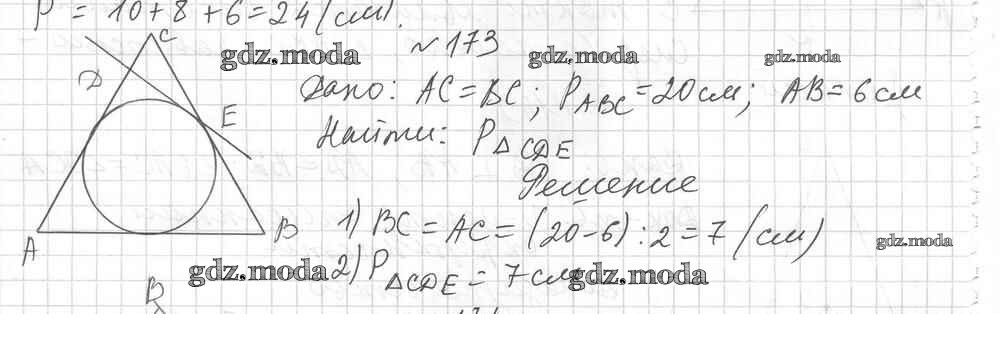 P = 10+8+6=24(см).
C
gdz.moda gdz.moda gdz.moda
№173
D
Дано: AC=BC; P_ABC=20см; AB=6см
E
Найти: P_△CDE
Решение
1) BC=AC=(20-6):2=7(см)
A B
gdz.moda
gdz.moda 2) P_△CDE = 7см gdz.moda
B